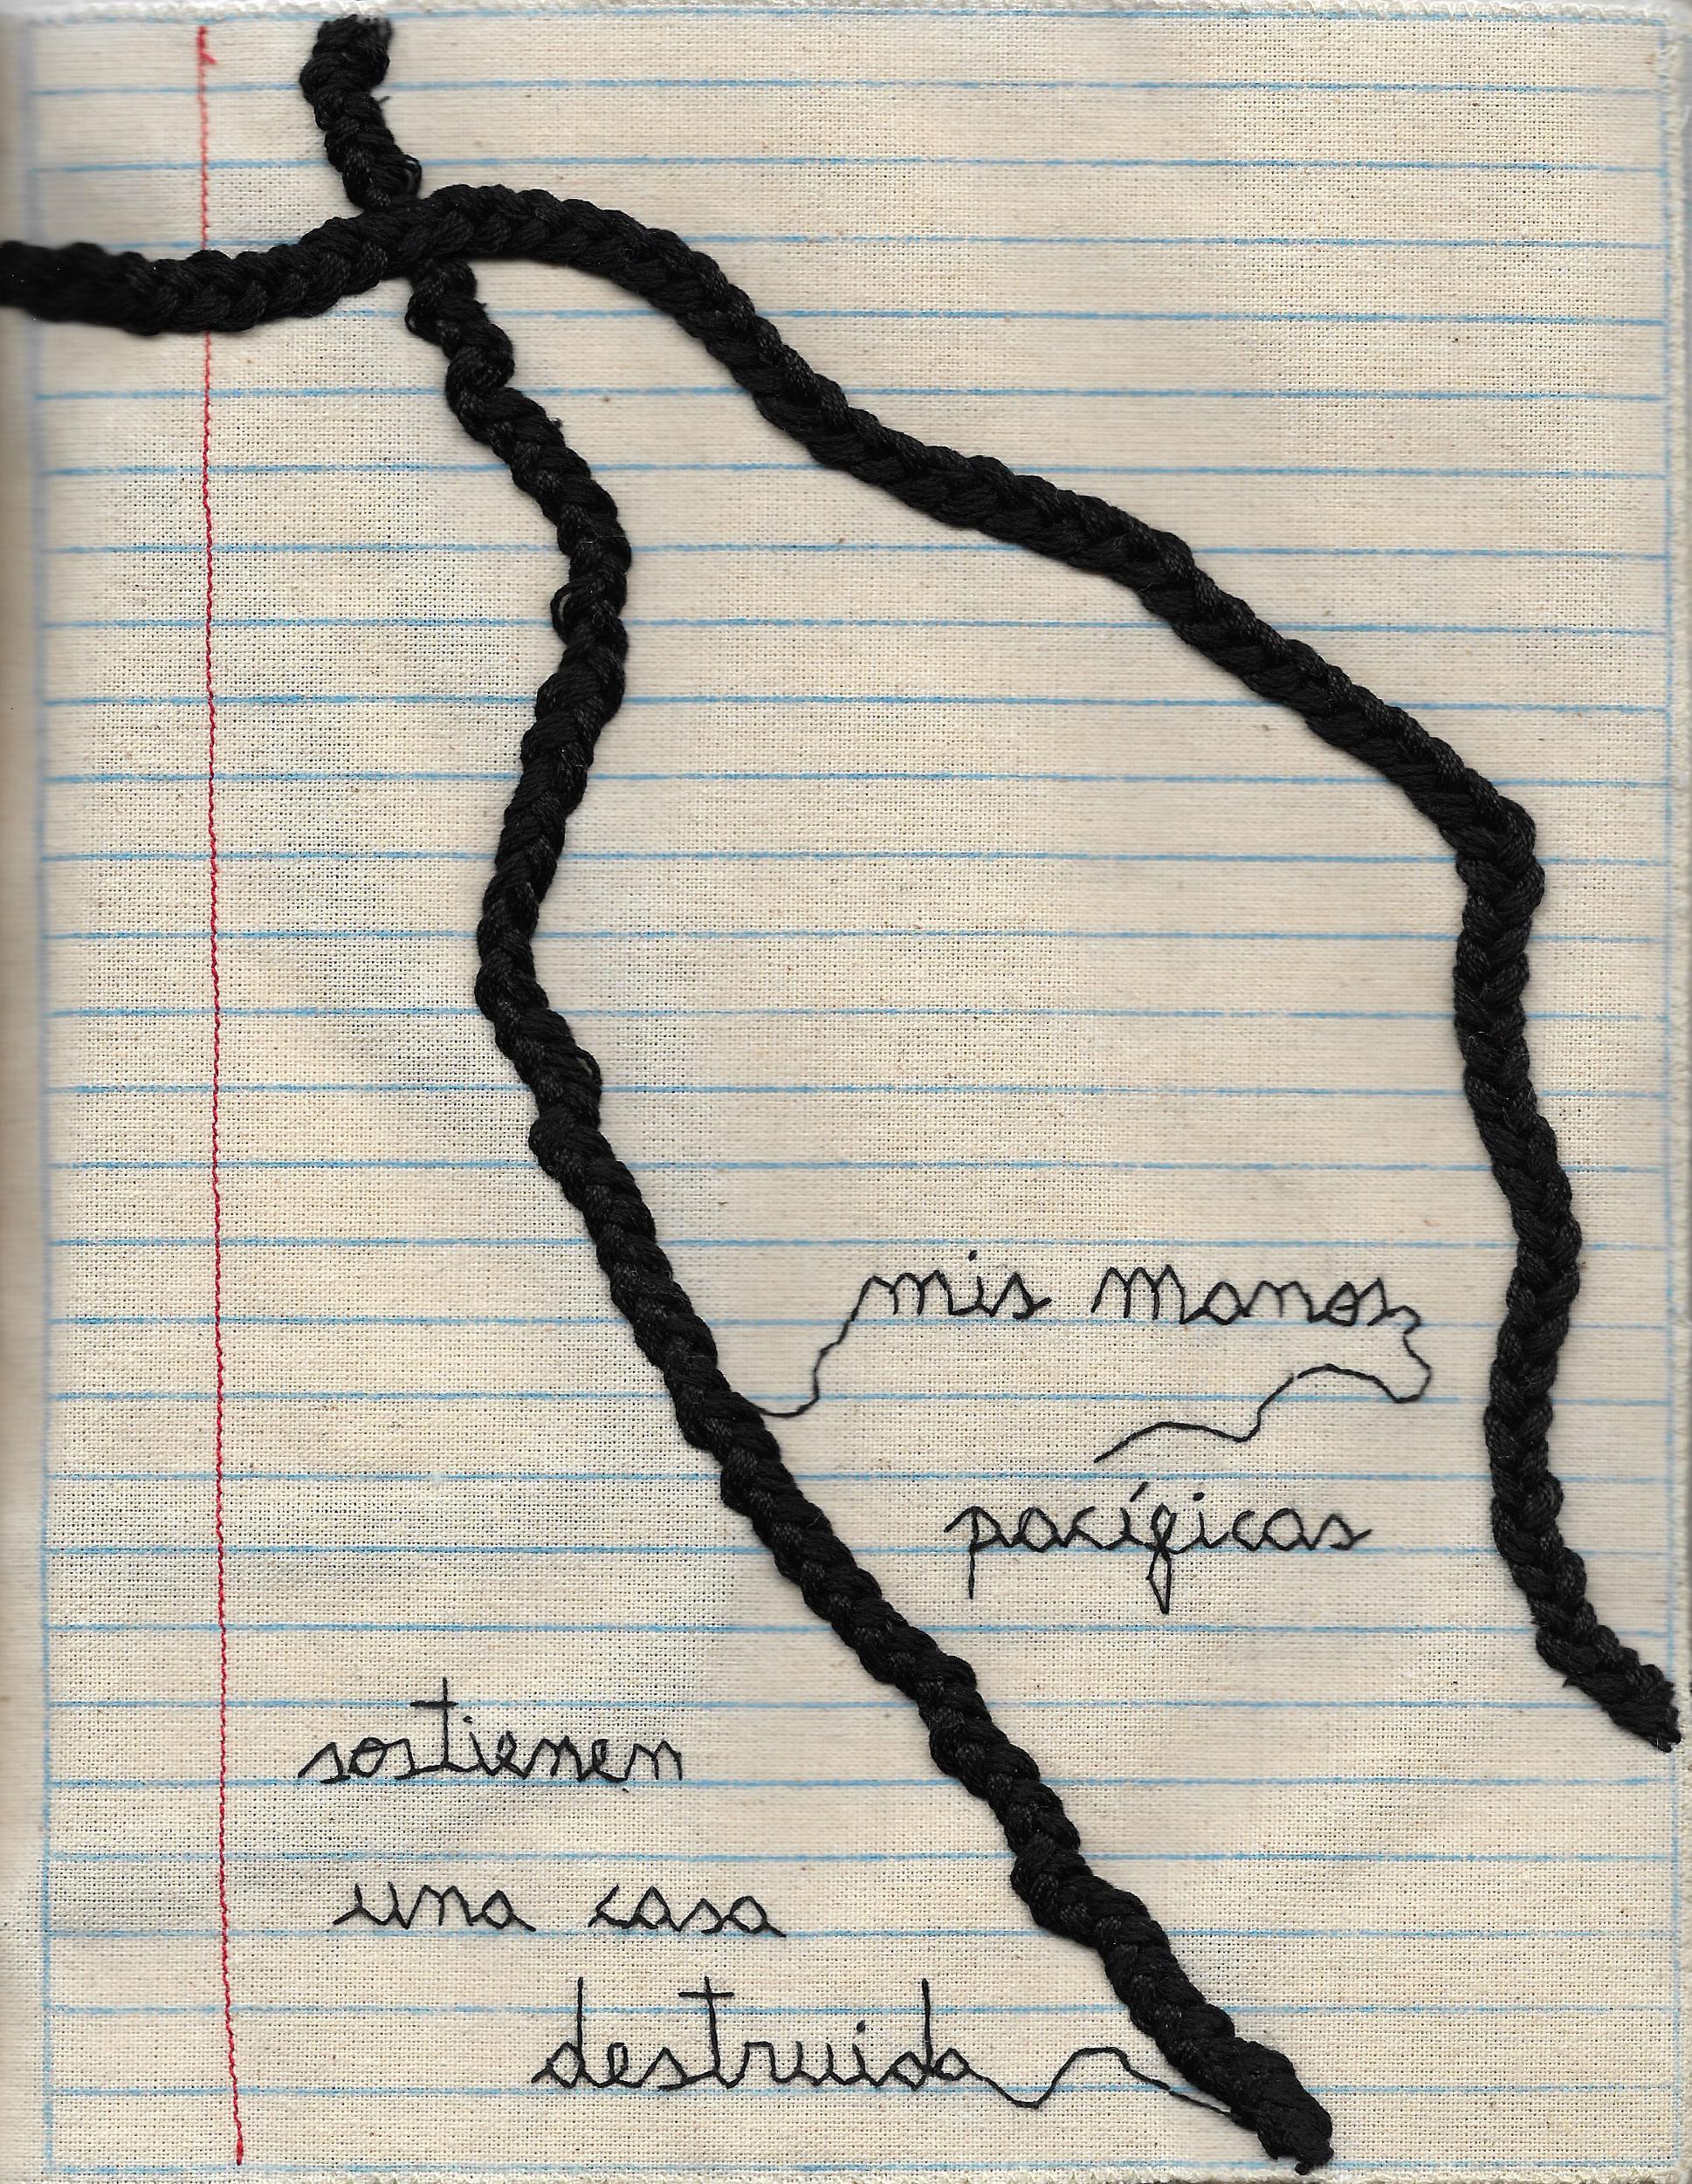 mis manos
pacíficas
sostienen
una casa
destruida